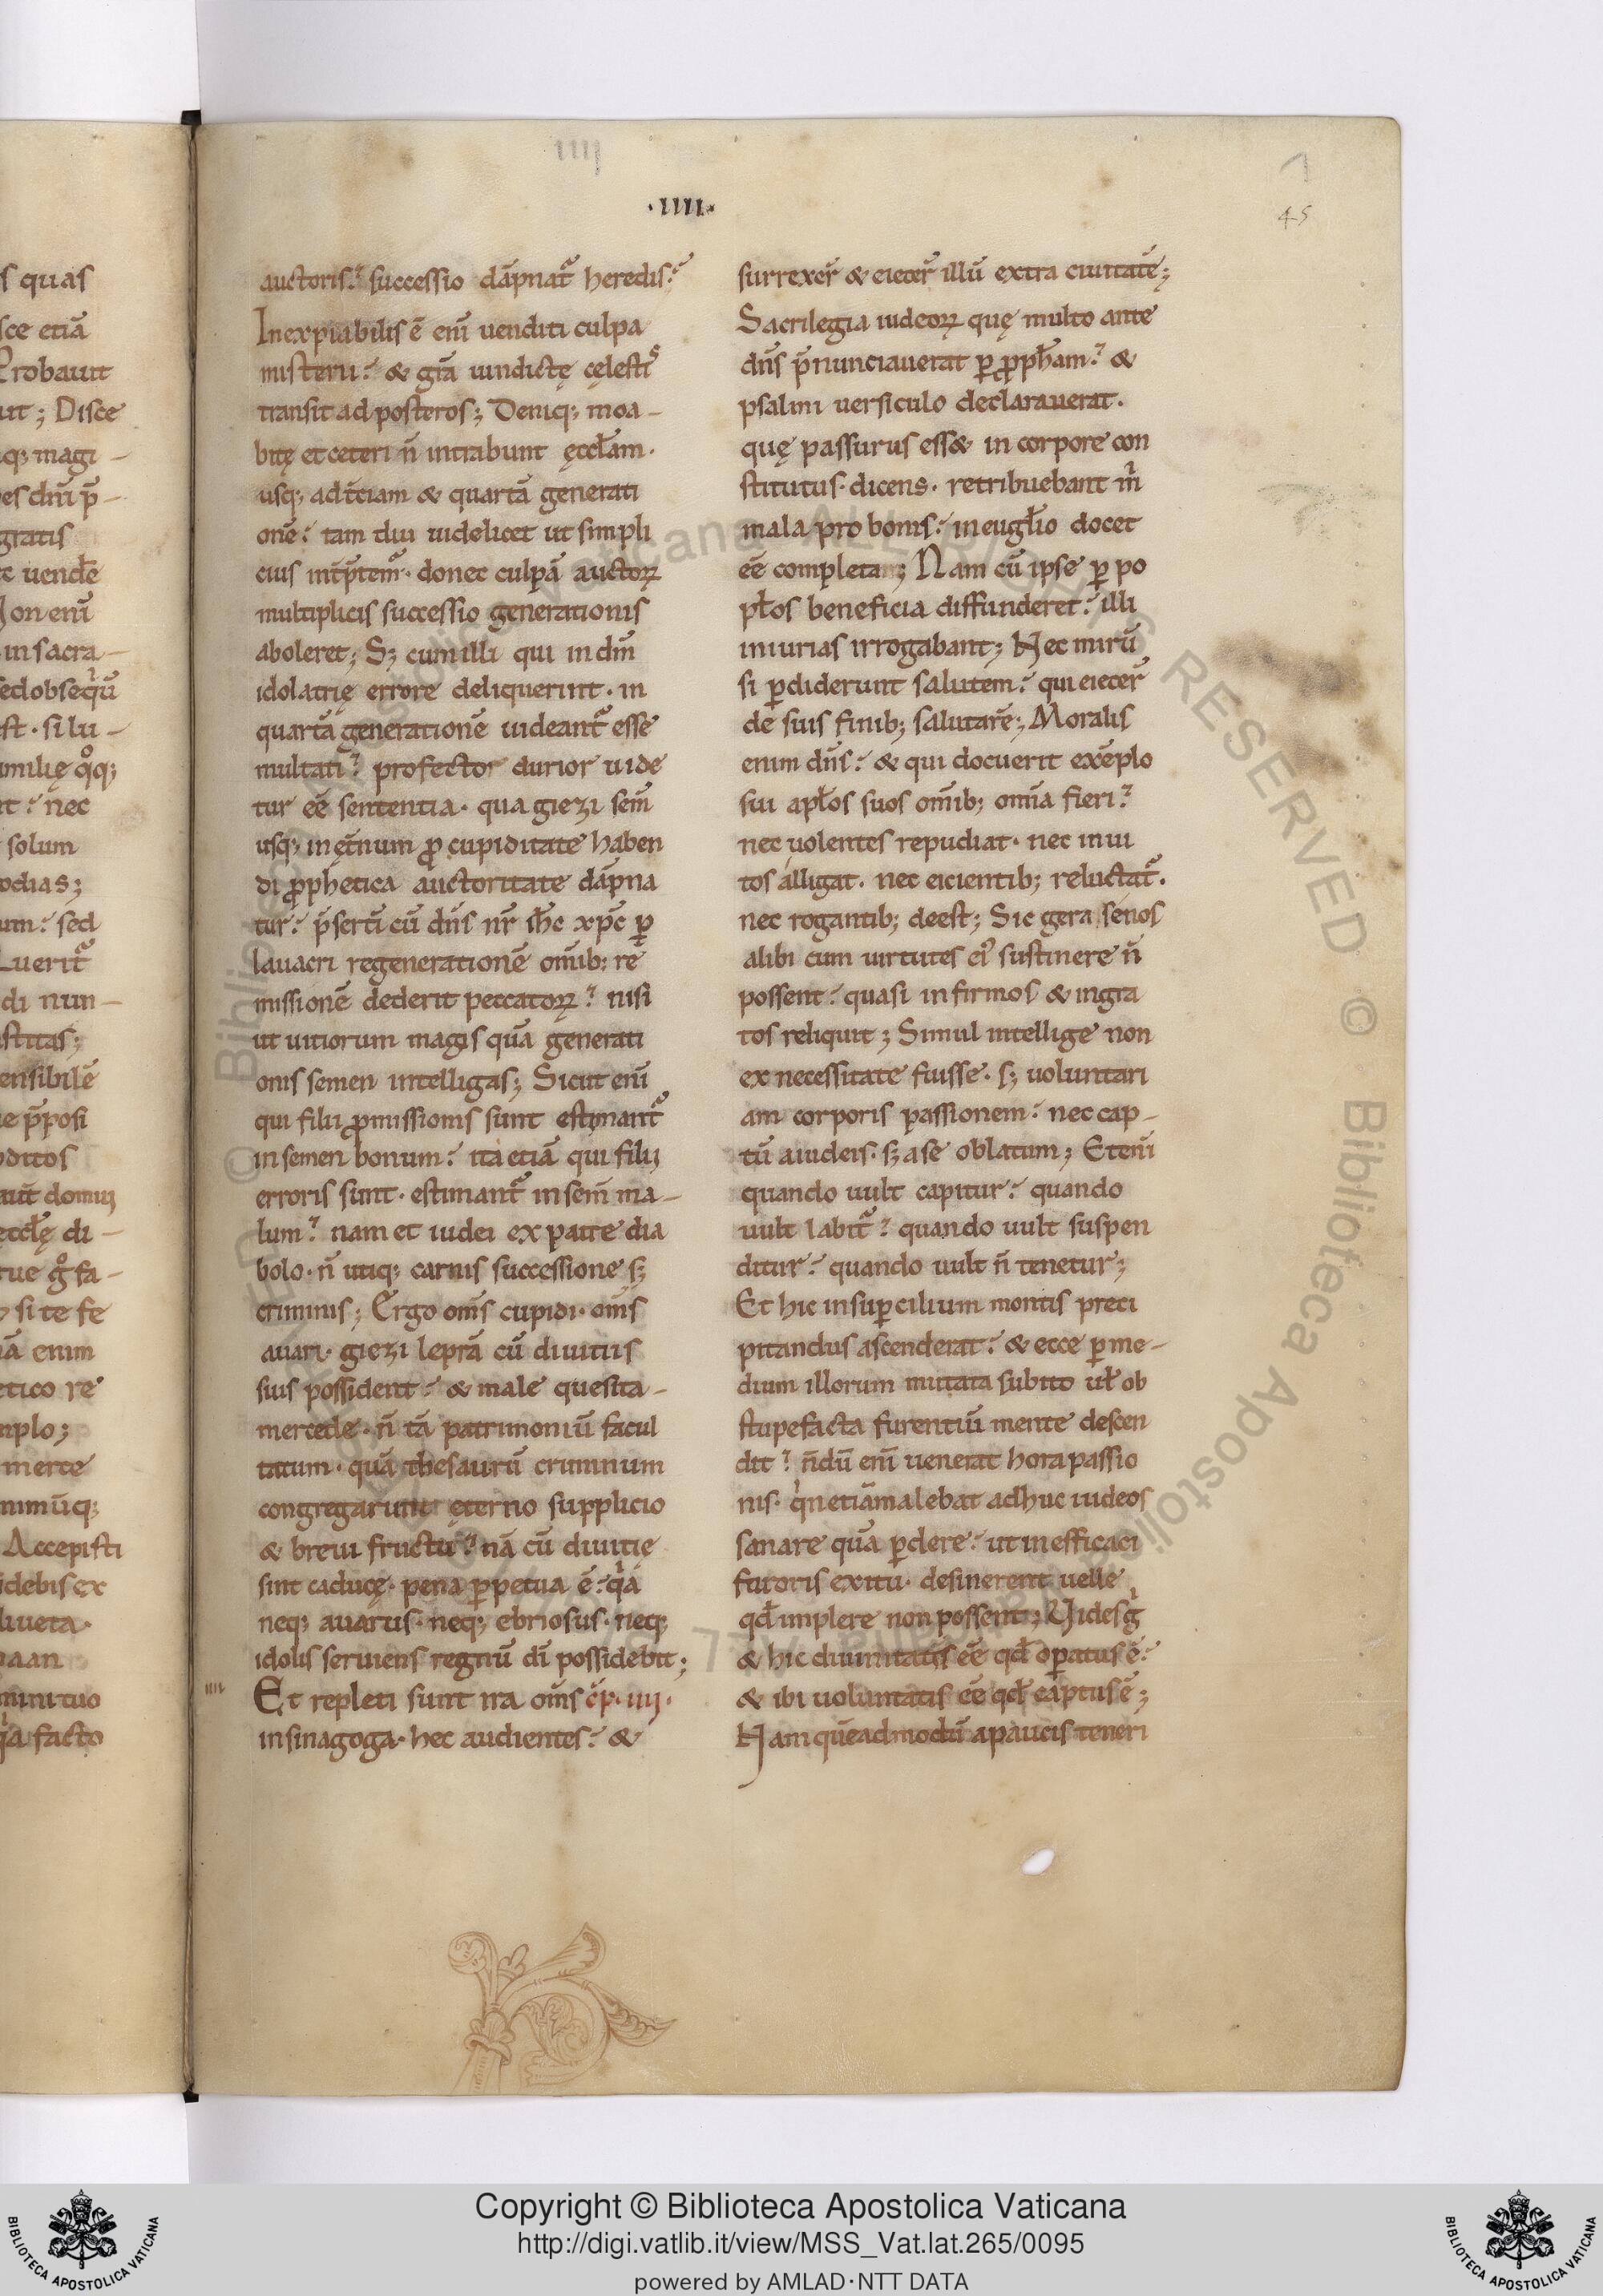 s quas
sce etiā
Probauit
uit ; Disce
iq; magi -
es dn̄i p̄ -
gratis
c uende
Non eni
in sacra -
sed obsequiū
st · si lu -
amilię q°q;
nt : nec
solum
odias ;
um : sed
di nun -
stitas ;
ensibilē
ue p̄posi
oditos
di -
si te fe
iā enim
etico re
mplo ;
merce
nimūq;
Accepisti
idebis ex
liueta ·
naan
mini tuo
facto
IIII
·IIII·
45
auctoris : successio dāpnat᷑ heredis :
Inexpiabilis ē eni᷑ uenditi culpa
misterii : & gr̄a uindictę cęlestis
transit ad posteros ; Deniq; moa -
bitę et ceteri n̄ intrabunt ęccl̄am ·
usq; ad t̄ciam & quartā generati
onē : tam diu uidelicet ut simpli
cius int̄p̄tem᷑ · donec culpā auctoꝝ
multiplicis successio generationis
aboleret ; Sꝫ cum illi qui in dm̄
idolatrię errore deliquerint · in
quartā generationē uideant᷑ esse
multati : profecto durior uide
tur eē sententia · qua giezi sem̄
usq; in ęt̄num ꝓ cupiditate haben
di ꝓphetica auctoritate dāpna
tur : p̄sertī cū dn̄s nr̄ ih̄c xp̄c ꝑ
lauacri regenerationē omīb; re
missionē dederit peccatoꝝ : nisi
ut uitiorum magis quā generati
onis semen intelligas ; Sicut enī
qui filii ꝓmissionis sunt estimant᷑
in semen bonum : ita etiā qui filii
erroris sunt · estimant᷑ in sem̄ ma -
lum : nam et iudei ex patre dia
bolo · n̄ utiq; carnis successione sꝫ
criminis ; Ergo om̄s cupidi · om̄s
auari · giezi leprā cū diuitiis
suis possident : & male quesita -
mercede · n̄ tā patrimoniū facul
tatum · quā thesaurū criminum
congregarunt ęterno supplicio
& breui fructu : nā cū diuitię
sint caducę · pena ꝑpetua ē : qͥa
neq; auarus · neq; ebriosus · neq;
idolis seruiens regnū dī possidebit ;
IIII Et repleti sunt ira om̄s c̄p · iiij ·
in sinagoga · hec audientes : &
surrexer᷑ & eiecer᷑ illū extra ciuitatē ;
Sacrilegia iudeoꝝ quę multo ante
dn̄s p̄nunciauerat ꝑ ꝓph̄am : &
psalmi uersiculo declarauerat ·
quę passurus ess& in corpore con
stitutus · dicens · retribuebant m̄
mala pro bonis : in eugl̄io docet
eē completam ; Nam cū ipse ꝑ po
pl̄os beneficia diffunderet : illi
iniurias irrogabant ; Nec mirū
si ꝑdiderunt salutem : qui eiecer᷑
de suis finib; salutarē ; Moralis
enim dn̄s : & qui docuerit exēplo
sui apl̄os suos omīb; om̄ia fieri :
nec uolentes repudiat · nec inui
tos alligat · nec eicientib; reluctat᷑ ·
nec rogantib; deest ; Sic gerasenos
alibi cum uirtutes ei᷒ sustinere n̄
possent : quasi infirmos & ingra
tos reliquit ; Simul intellige non
ex necessitate fuisse · sꝫ uoluntari
am corporis passionem : nec cap -
tū a iudeis · sꝫ a se oblatum ; Etenī
quando uult capitur : quando
uult labit᷑ : quando uult suspen
ditur : quando uult n̄ tenetur ;
Et hic in suꝑcilium montis preci
pitandus ascenderat : & ecce ꝑ me -
dium illorum mutata subito ul̄ ob
stupefacta furentiū mente descen
dit : n̄dū enī uenerat hora passio
nis · qͥn etiā malebat adhuc iudeos
sanare quā ꝑdere : ut inefficaci
furoris exitu · desinerent uelle
qd̄ implere non possent ; Uides gͥ
& hic diuinitatis eē qd̄ oꝑatus ē :
& ibi uoluntatis eē qd̄ captus ē ;
Nam quēadmodū a paucis teneri
© Biblioteca Apostolica Vaticana ALL RIGHTS RESERVED
Copyright © Biblioteca Apostolica Vaticana
http://digi.vatlib.it/view/MSS_Vat.lat.265/0095
powered by AMLAD·NTT DATA
BIBLIOTECA APOSTOLICA VATICANA
BIBLIOTECA APOSTOLICA VATICANA